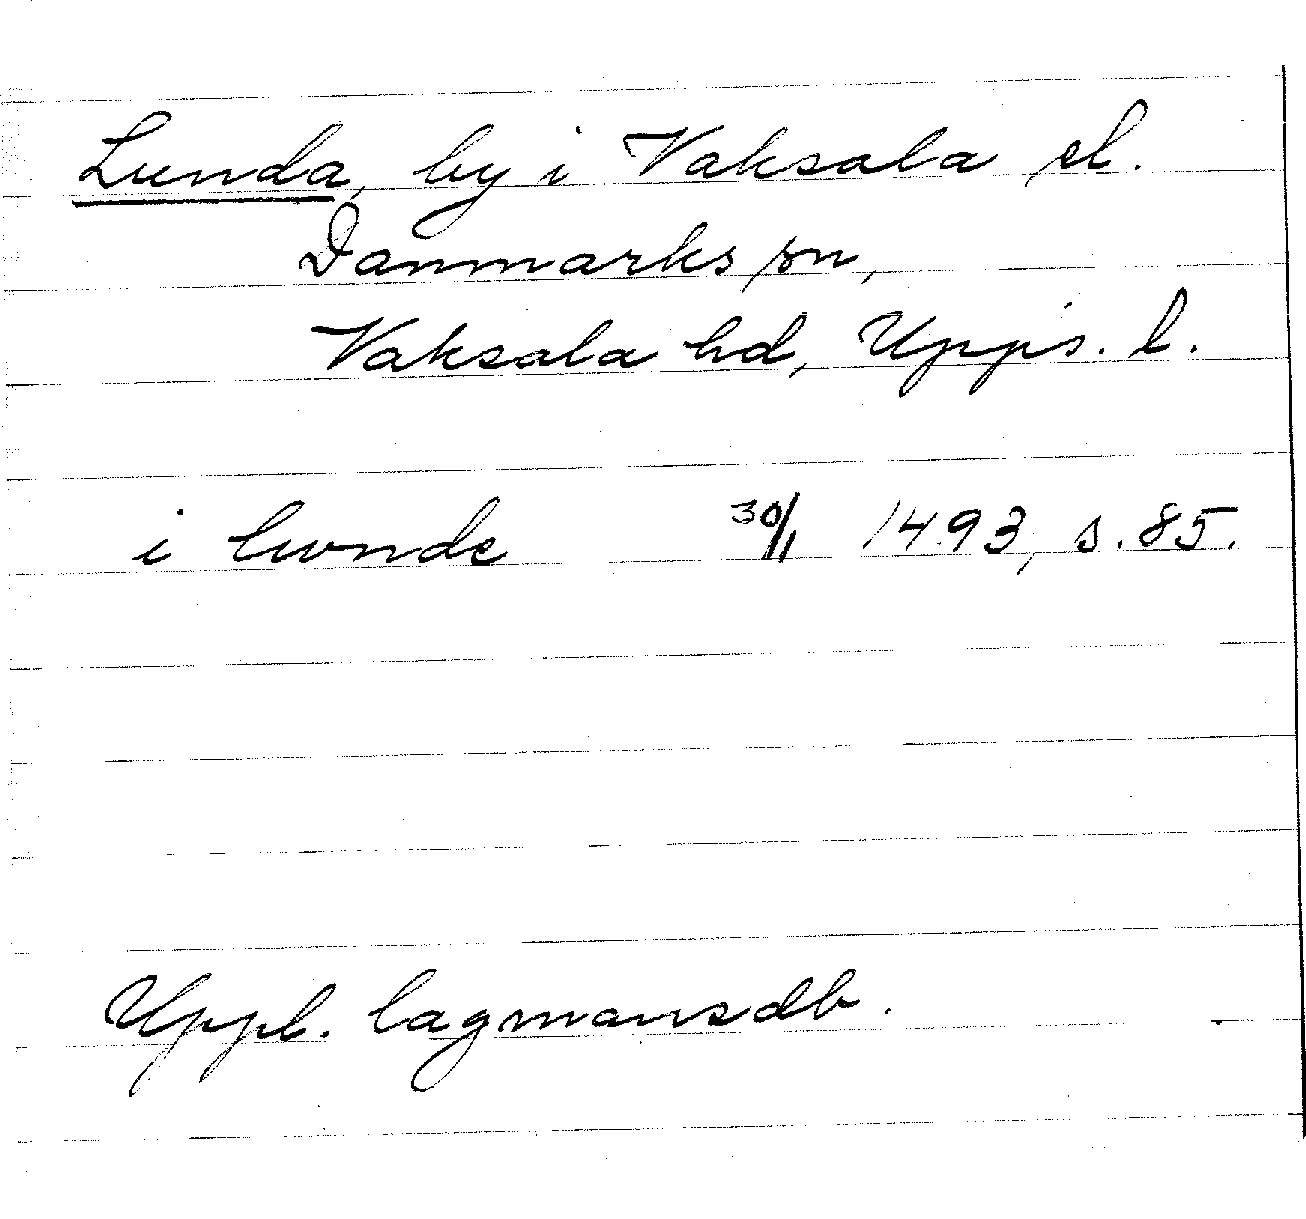 Lunda, by i Vaksala el.
Danmarks sn,
Vaksala hd, Upps. l.
i lwnde 30/11 1493, s. 85.
Uppl. lagmansdb.